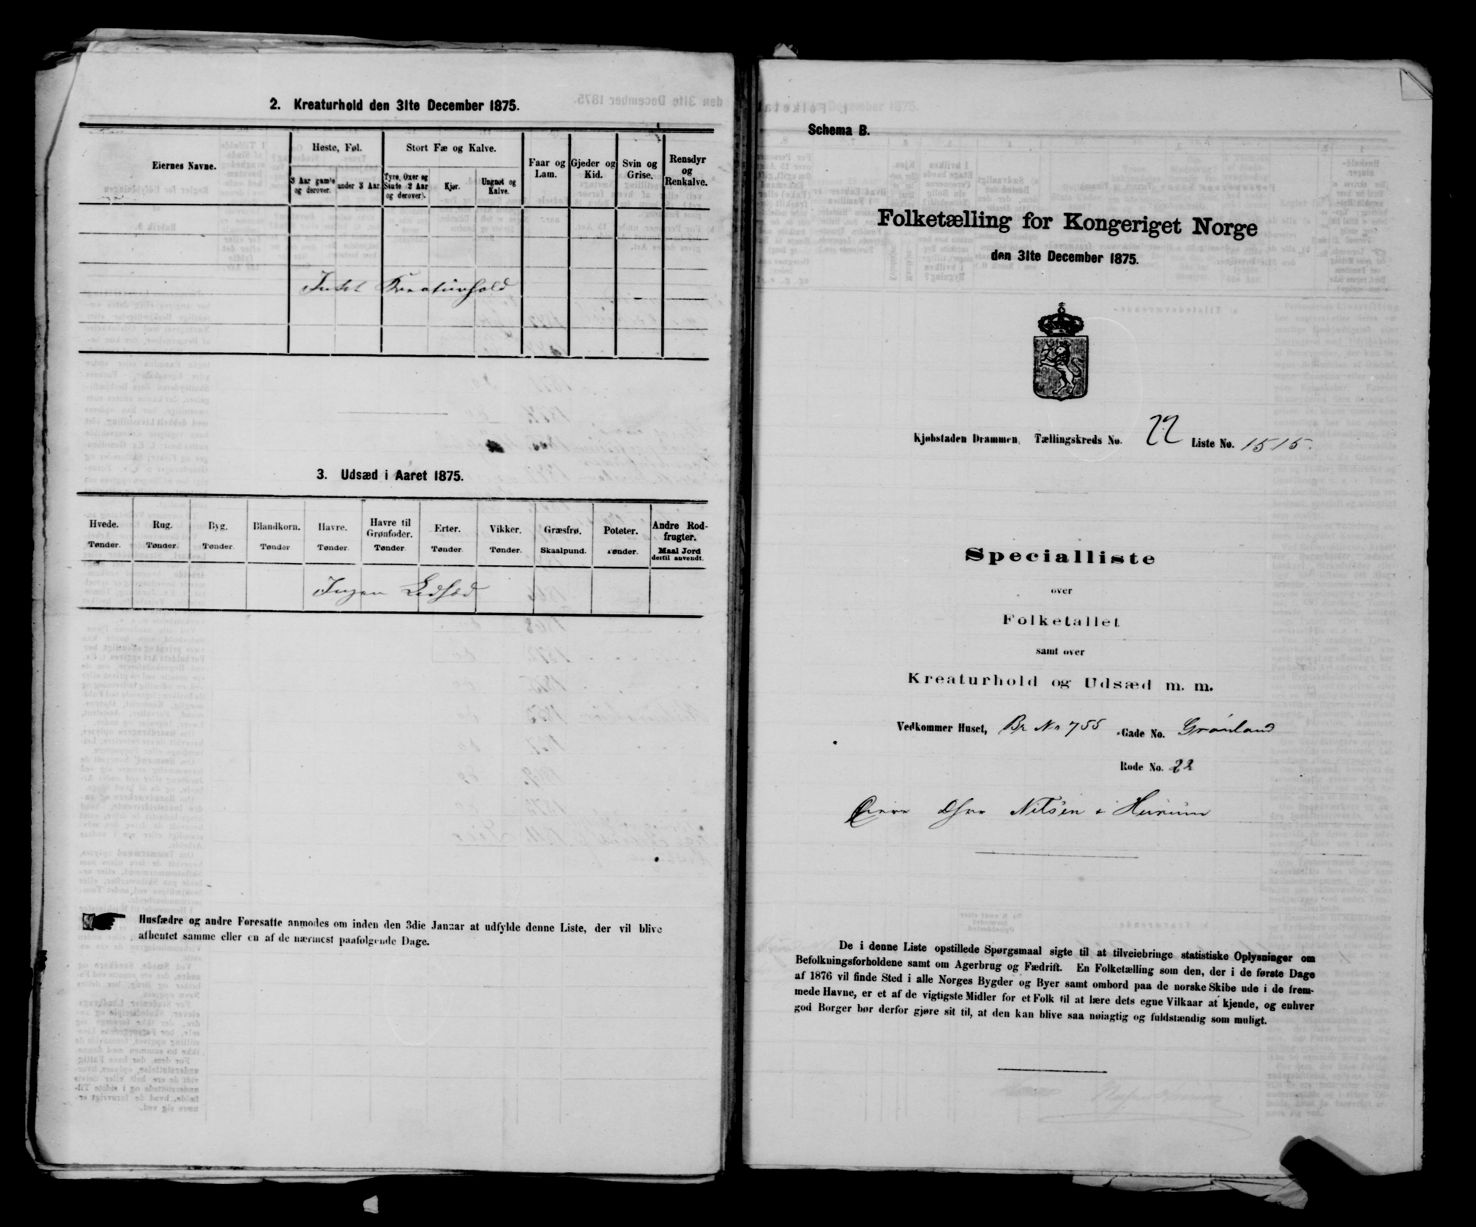 2. Kreaturhold den 31te December 1875.
Eiernes Navne.
Heste, Føl.
Stort Fæ og Kalve.
Faar og Lam.
Gjeder og Kid.
Svin og Grise.
Rensdyr og Renkalve.
3 Aar gamle og derover.
under 3 Aar.
Tyre, Oxer og Stude 2 Aar og derover.
Kjør.
Ungnøt og Kalve.
Intet Kreaturhold
3. Udsæd i Aaret 1875.
Hvede. Rug. Byg. Blandkorn. Havre. Havre til Grønfoder. Erter. Vikker. Græsfrø. Poteter. Andre Rodfrugter.
Tønder. Tønder. Tønder. Tønder Tønder. Tønder. Tønder. Tønder. Skaalpund. Tønder. Maal Jord dertil anvendt.
Ingen Udsæd
Husfædre og andre Foresatte anmodes om inden den 3die Januar at udfylde denne Liste, der vil blive
afhentet samme eller en af de nærmest paafølgende Dage.
Schema B.
Folketælling for Kongeriget Norge
den 31te December 1875.
Kjøbstaden Drammen, Tællingskreds No. 22 Liste No. 1515.
Specialliste
over
Folketallet
samt over
Kreaturhold og Udsæd m. m.
Vedkommer Huset, Br No 755 Gade No. Grønland
Rode No. 22
Nilsen i Hurum
De i denne Liste opstillede Spørgsmaal sigte til at tilveiebringe statistiske Oplysninger om
Befolkningsforholdene samt om Agerbrug og Fædrift. En Folketælling som den, der i de første Dage
af 1876 vil finde Sted i alle Norges Bygder og Byer samt ombord paa de norske Skibe ude i de frem-
mede Havne, er et af de vigtigste Midler for et Folk til at lære dets egne Vilkaar at kjende, og enhver
god Borger bør derfor gjøre sit til, at den kan blive saa nøiagtig og fuldstændig som muligt.